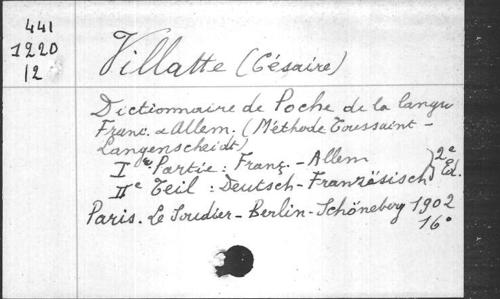 441
1220
12
Villatte (Césaire)
Dictionnaire de Poche de la langue
Franc. & Allem. (Méthode Toussaint -
Langenscheidt)
Ire Partie : Franç. - Allem
IIe Teil : Deutsch - Französisch } 2e Ed.
Paris. Le Soudier - Berlin - Schöneberg 1902
16°